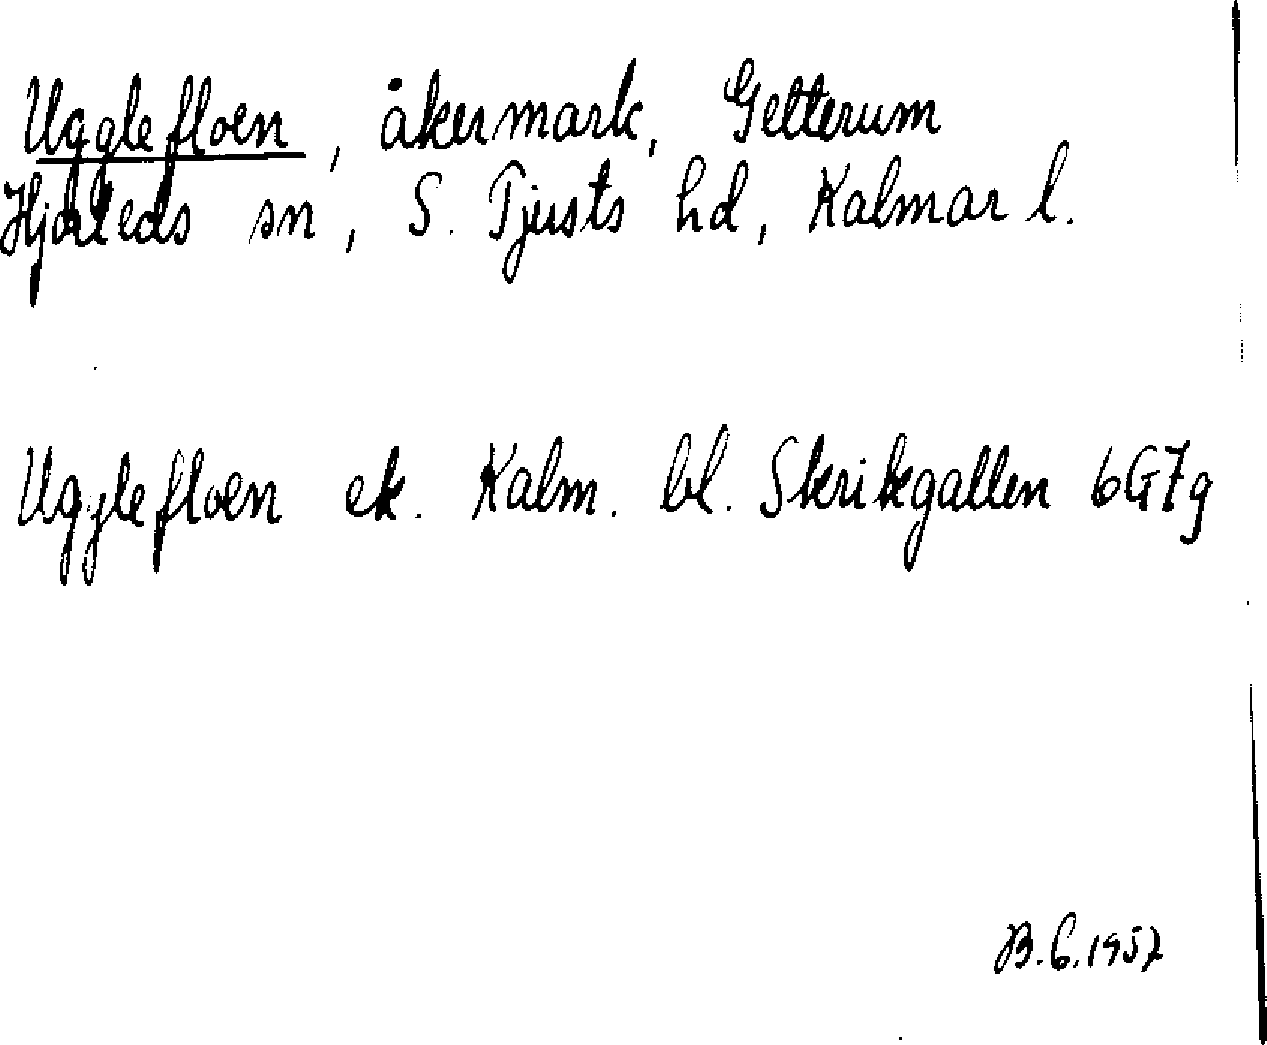 Ugglefloen, åkermark, Getterum
Hjorteds sn, S. Tjusts hd, Kalmar l.
Ugglefloen ek. Kalm. bl. Skrikgallen 6G7g
B.G.1957